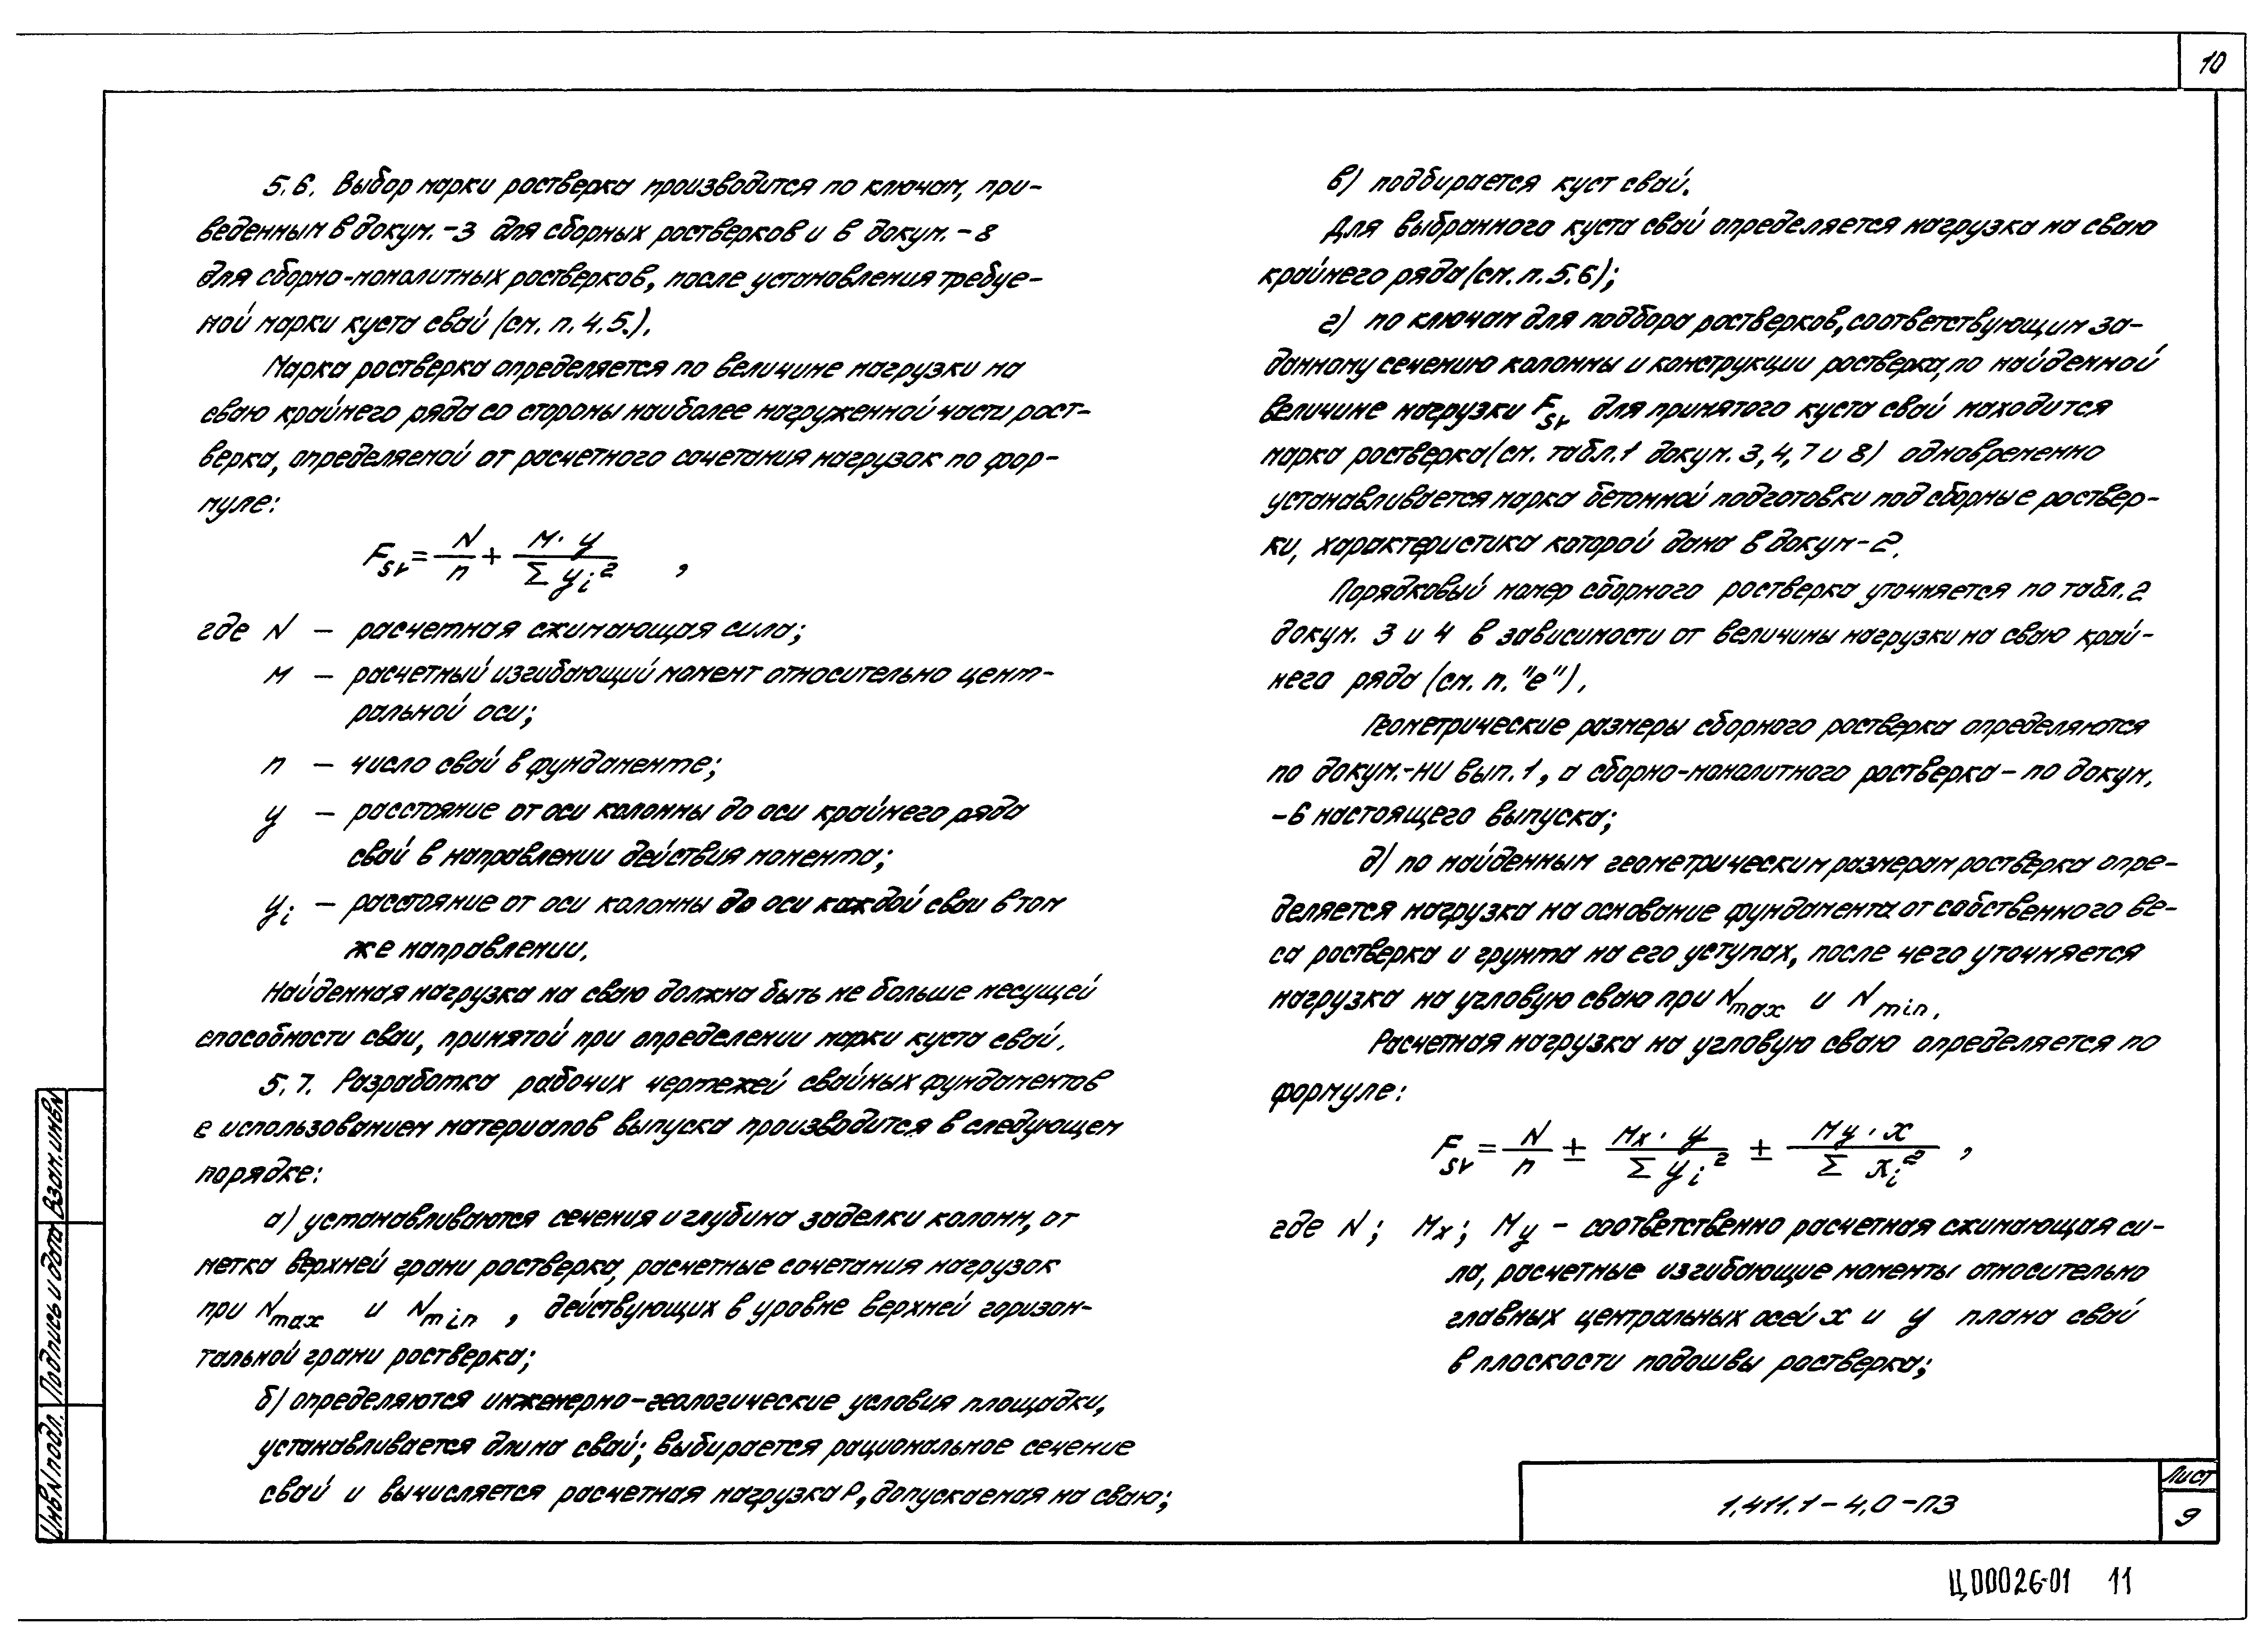 10
5.6. Выбор марки ростверка производится по ключам, при-
веденным в докум. -3 для сборных ростверков и в докум. -8
для сборно-монолитных ростверков, после установления требуе-
мой марки куста свай (см. п. 4.5.).
Марка ростверка определяется по величине нагрузки на
сваю крайнего ряда со стороны наиболее нагруженной части рост-
верка, определяемой от расчетного сочетания нагрузок по фор-
муле:
Fsv = N/n + M·y/Σ yi² ,
где N – расчетная сжимающая сила;
M – расчетный изгибающий момент относительно цент-
ральной оси;
n – число свай в фундаменте;
y – расстояние от оси колонны до оси крайнего ряда
свай в направлении действия момента;
yi – расстояние от оси колонны до оси каждой сваи в том
же направлении.
Найденная нагрузка на сваю должна быть не больше несущей
способности сваи, принятой при определении марки куста свай.
5.7. Разработка рабочих чертежей свайных фундаментов
с использованием материалов выпуска производится в следующем
порядке:
а) устанавливаются сечения и глубина заделки колонн, от
метка верхней грани ростверка, расчетные сочетания нагрузок
при Nmax и Nmin , действующих в уровне верхней горизон-
тальной грани ростверка;
б) определяются инженерно-геологические условия площадки,
устанавливается длина свай; выбирается рациональное сечение
свай и вычисляется расчетная нагрузка Р, допускаемая на сваю;
в) подбирается куст свай.
Для выбранного куста свай определяется нагрузка на сваю
крайнего ряда (см. п. 5.6);
г) по ключам для подбора ростверков, соответствующим за-
данному сечению колонны и конструкции ростверка, по найденной
величине нагрузки Fsv для принятого куста свай находится
марка ростверка (см. табл. 1 докум. 3, 4, 7 и 8) одновременно
устанавливается марка бетонной подготовки под сборные роствер-
ки, характеристика которой дана в докум-2.
Порядковый номер сборного ростверка уточняется по табл. 2
докум. 3 и 4 в зависимости от величины нагрузки на сваю край-
него ряда (см. п. "е").
Геометрические размеры сборного ростверка определяются
по докум.-НИ вып. 1, а сборно-монолитного ростверка – по докум.
-6 настоящего выпуска;
д) по найденным геометрическим размерам ростверка опре-
деляется нагрузка на основание фундамента от собственного ве-
са ростверка и грунта на его уступах, после чего уточняется
нагрузка на угловую сваю при Nmax и Nmin.
Расчетная нагрузка на угловую сваю определяется по
формуле:
Fsv = N/n ± Mx·y/Σ yi² ± My·x/Σ xi² ,
где N; Mx; My – соответственно расчетная сжимающая си-
ла, расчетные изгибающие моменты относительно
главных центральных осей x и y плана свай
в плоскости подошвы ростверка;
Взам. инв N
Подпись и дата
Инв N подл.
1.411.1-4.0-ПЗ
Лист
9
Ц00026-01 11